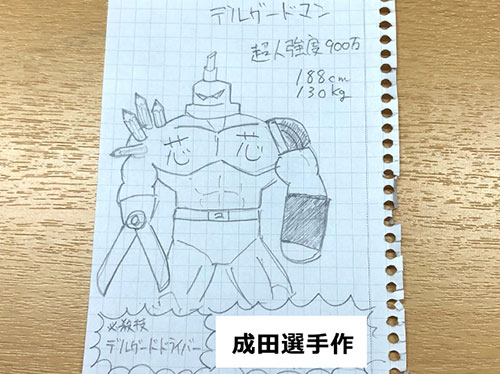 デルガードマン
超人強度900万
188cm
130kg
芯 芯
2
必殺技
デルガードドライバー
成田選手作